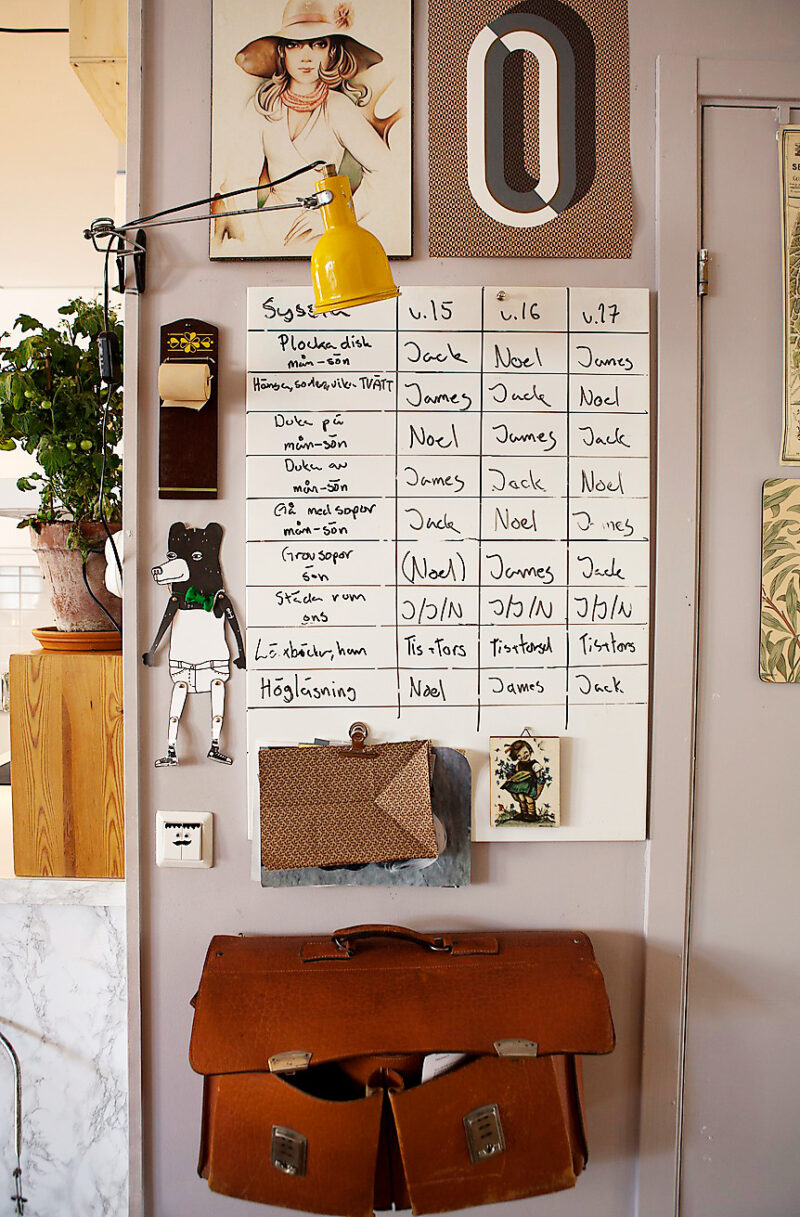 v.15 v.16 v.17
Plocka disk
mån-sön Jack Noel James
Hänga, sortera, vika TVÄTT James Jack Noel
Duka på
mån-sön Noel James Jack
Duka av
mån-sön James Jack Noel
Gå med sopor
mån-sön Jack Noel James
Grovsopor
sön (Noel) James Jack
Städa rum
ons J/J/N J/J/N J/J/N
Läxböcker, hem Tis+Tors Tis+torsd Tis+tors
Högläsning Noel James Jack